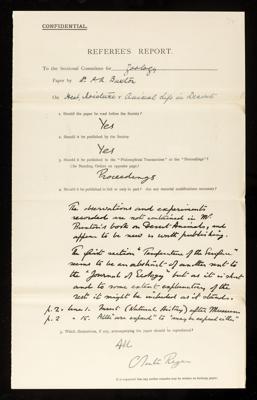 CONFIDENTIAL.
REFEREE'S REPORT.
To the Sectional Committee for Zoology
Paper by Dr. P.A. Buxton
On Heat, Moisture & Animal Life in Deserts
1. Should the paper be read before the Society?
Yes
2. Should it be published by the Society?
Yes
3. Should it be published in the "Philosophical Transactions" or the "Proceedings"?
(See Standing Orders on opposite page)
Proceedings
4. Should it be published in full or only in part? Are any material modifications necessary?
The observations and experiments
recorded are not contained in Mr.
Buxton's book on Desert Animals, and
appear to be new & worth publishing.
The first section "Temperature of the Surface"
seems to be an abstract of another sent to
the "Journal of Ecology" but as it is short
and to some extent explanatory of the
rest it might be included as it stands.
p. 2. line 1. Insert (Natural History) after Museum
p. 2 15. "are exposed" to "may be exposed either"
5. Which illustrations, if any, accompanying the paper should be reproduced?
All
C Tate Regan
It is requested that any further remarks may be written on ordinary paper.